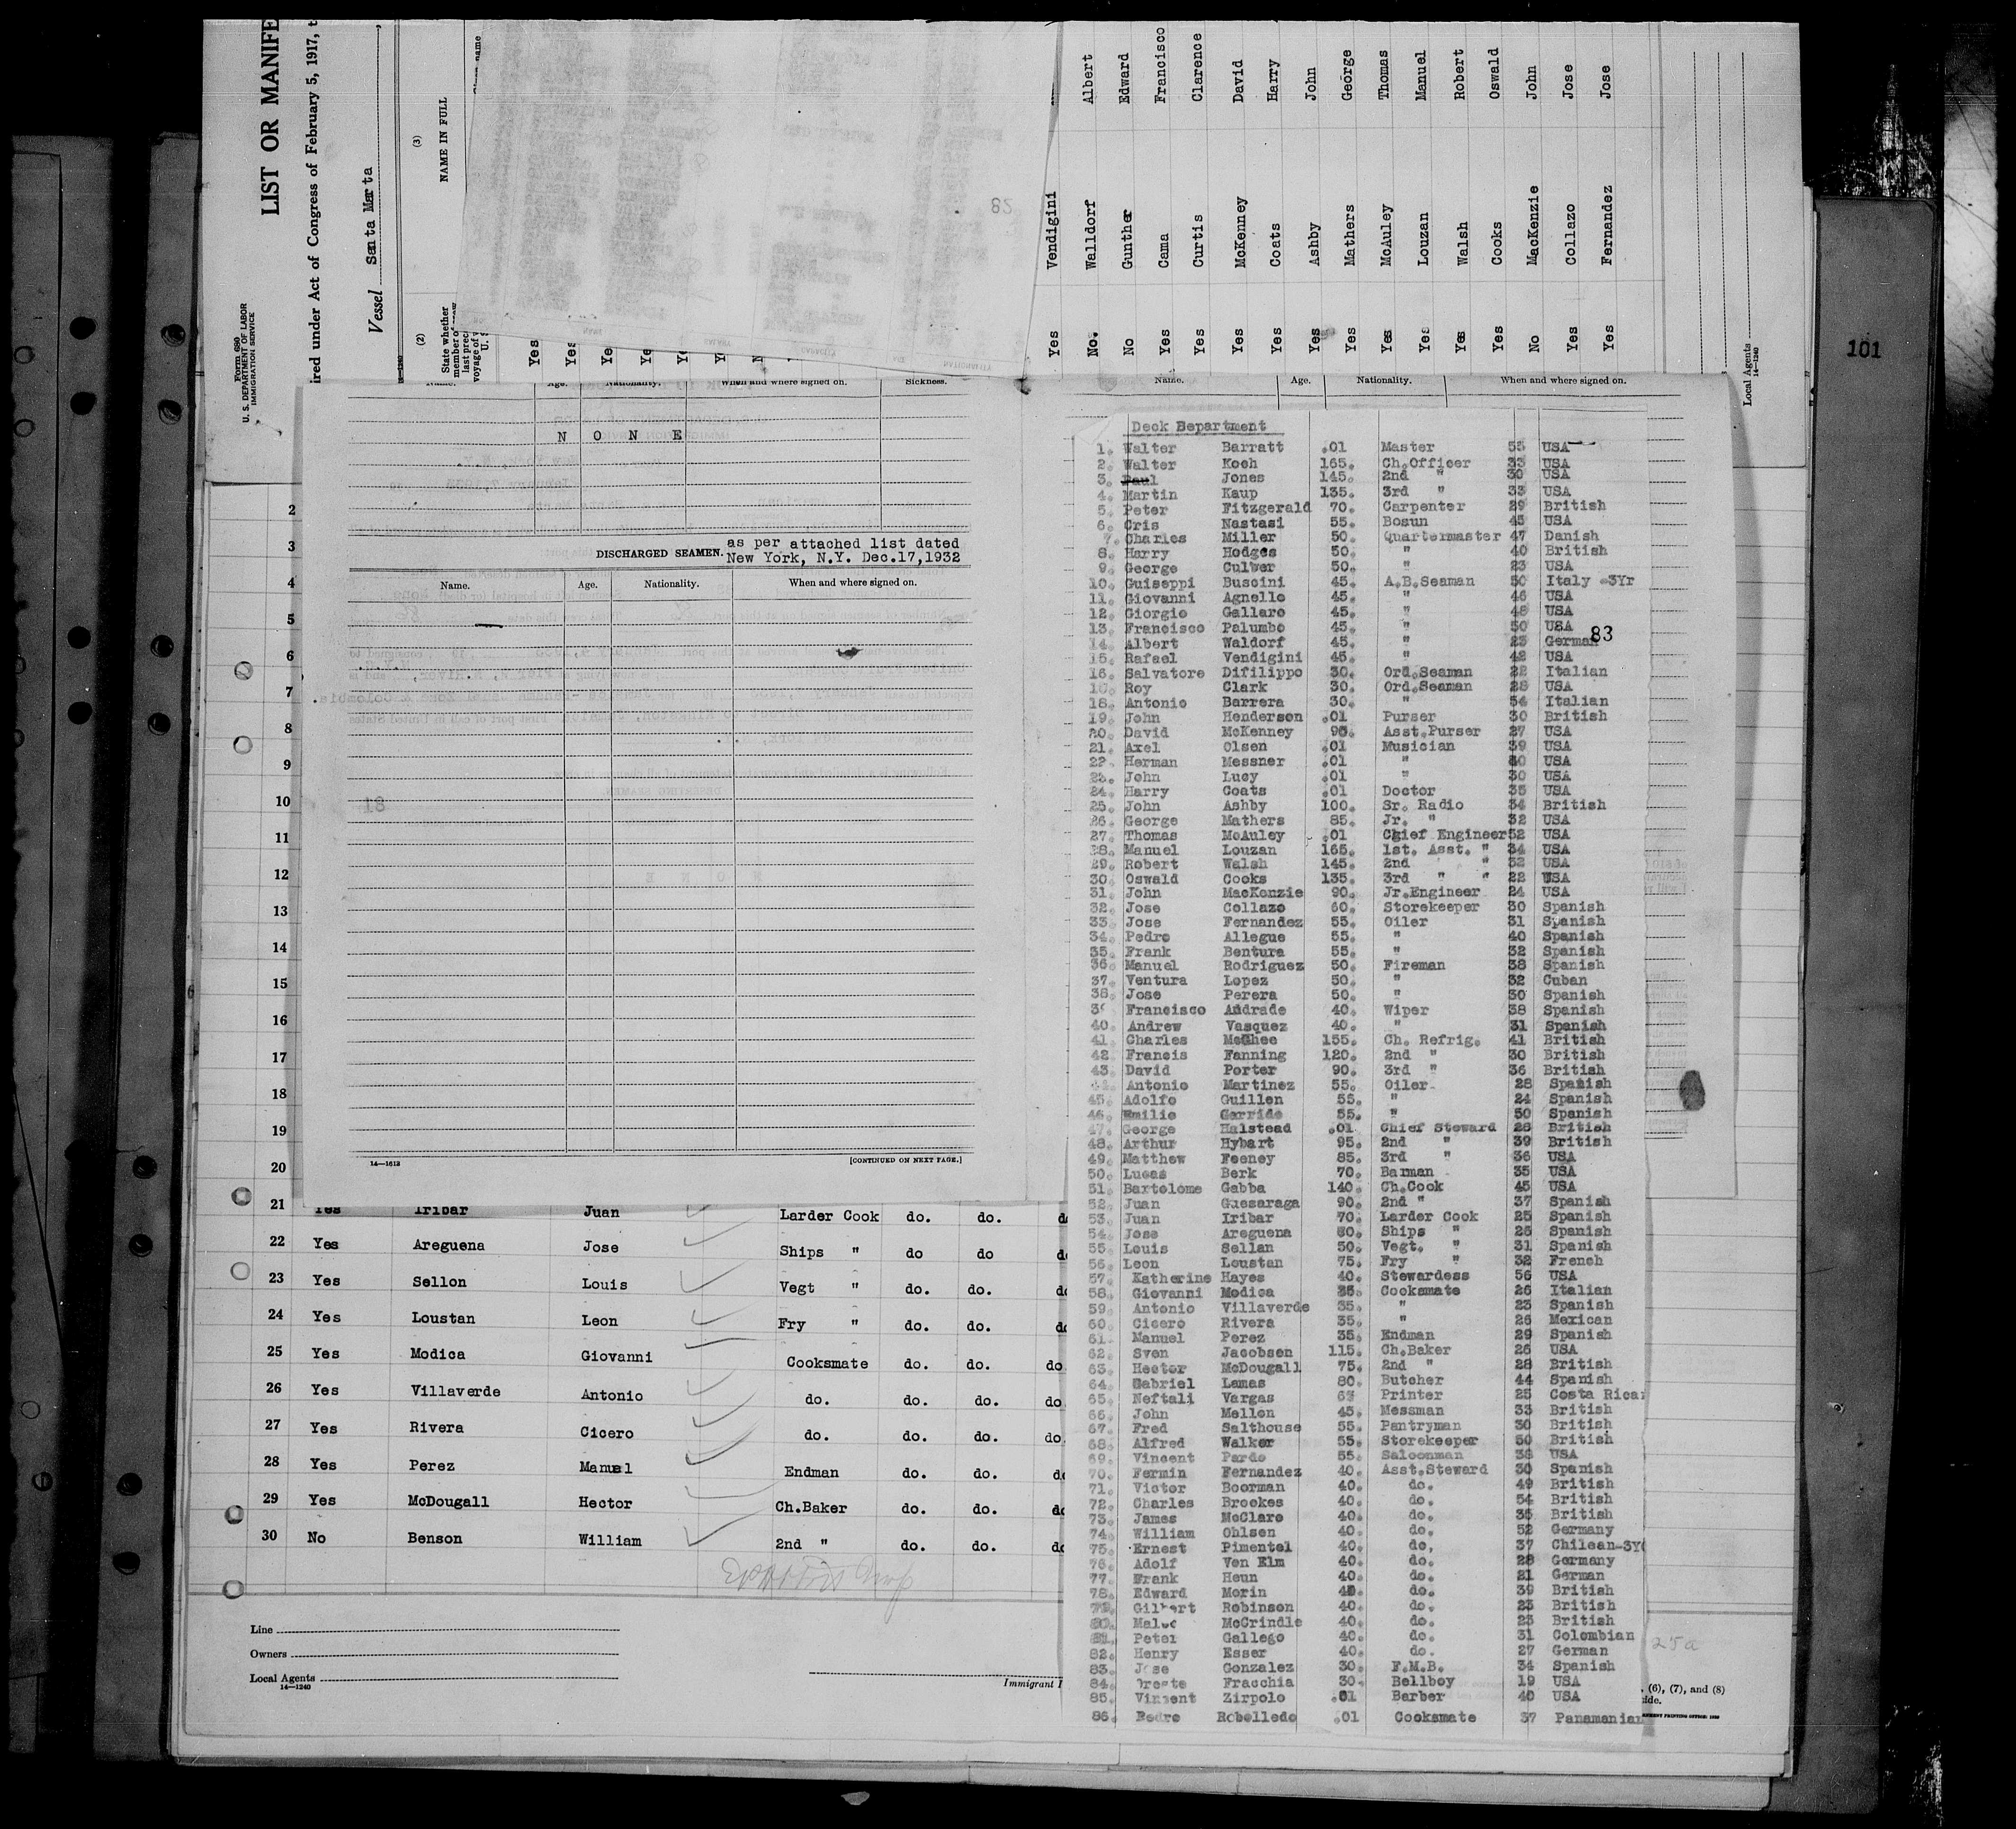 LIST OR MANIFE
ired under Act of Congress of February 5, 1917, t
Vessel Santa Marta
Form 680
U. S. DEPARTMENT OF LABOR
IMMIGRATION SERVICE
(3)
NAME IN FULL
(2)
State whether
member of
last prec
voyage of
U. S
82
Yes Vendigini
No. Walldorf Albert
No Gunther Edward
Yes Cama Francisco
Yes Curtis Clarence
Yes McKenney David
Yes Coats Harry
Yes Ashby John
Yes Mathers George
Yes McAuley Thomas
Yes Louzan Manuel
Yes Walsh Robert
Yes Cooks Oswald
No MacKenzie John
Yes Collazo Jose
Yes Fernandez Jose
Local Agents
14—1240
101
Name. Age. Nationality. When and where signed on. Sickness.
N O N E
DISCHARGED SEAMEN. as per attached list dated
New York, N.Y. Dec.17,1932
Name. Age. Nationality. When and where signed on.
81
14—1613 [CONTINUED ON NEXT PAGE.]
2
3
4
5
6
7
8
9
10
11
12
13
14
15
16
17
18
19
20
21 Yes Iribar Juan Larder Cook do. do.
22 Yes Areguena Jose Ships " do do
23 Yes Sellon Louis Vegt " do. do.
24 Yes Loustan Leon Fry " do. do.
25 Yes Modica Giovanni Cooksmate do. do. do
26 Yes Villaverde Antonio do. do. do. do
27 Yes Rivera Cicero do. do. do. do.
28 Yes Perez Manuel Endman do. do.
29 Yes McDougall Hector Ch.Baker do. do.
30 No Benson William 2nd " do. do.
Line
Owners
Local Agents
14—1240
Immigrant I
Name. Age. Nationality. When and where signed on.
Deck Department
1. Walter Barratt .01 Master 55 USA
2. Walter Koch 165. Ch.Officer 33 USA
3. Paul Jones 145. 2nd " 30 USA
4. Martin Kaup 135. 3rd " 33 USA
5. Peter Fitzgerald 70. Carpenter 29 British
6. Cris Nastasi 55. Bosun 45 USA
7. Charles Miller 50. Quartermaster 47 Danish
8. Harry Hodges 50. " 40 British
9. George Culver 50. " 23 USA
10. Guiseppi Buscini 45. A.B.Seaman 50 Italy -3Yr
11. Giovanni Agnello 45. " 46 USA
12. Giorgio Gallaro 45. " 48 USA
13. Francisco Palumbo 45. " 50 USA
14. Albert Waldorf 45. " 23 German
83
15. Rafael Vendigini 45. " 42 USA
16. Salvatore Difilippo 30. Ord.Seaman 22 Italian
Roy Clark 30. Ord.Seaman 28 USA
18. Antonio Barrera 30. " 54 Italian
19. John Henderson .01 Purser 30 British
20. David McKenney 90. Asst.Purser 27 USA
21. Axel Olsen .01 Musician 39 USA
22. Herman Messner .01 " 40 USA
23. John Lucy .01 " 30 USA
24. Harry Coats .01 Doctor 35 USA
25. John Ashby 100. Sr. Radio 34 British
26. George Mathers 85. Jr. " 32 USA
27. Thomas McAuley .01 Chief Engineer 52 USA
28. Manuel Louzan 165. 1st. Asst. " 34 USA
29. Robert Walsh 145. 2nd " 32 USA
30. Oswald Cooks 135. 3rd " " 22 USA
31. John MacKenzie 90. Jr.Engineer 24 USA
32. Jose Collazo 60. Storekeeper 30 Spanish
33. Jose Fernandez 55. Oiler 31 Spanish
34. Pedro Allegue 55. " 40 Spanish
35. Frank Bentura 55. " 32 Spanish
36. Manuel Rodriguez 50. Fireman 38 Spanish
37. Ventura Lopez 50. " 32 Cuban
38. Jose Perera 50. " 30 Spanish
3 Francisco Andrade 40. Wiper 38 Spanish
40. Andrew Vasquez 40. " 31 Spanish
41. Charles McGhee 155. Ch. Refrig. 41 British
42. Francis Fanning 120. 2nd " 30 British
43. David Porter 90. 3rd " 36 British
Antonio Martinez 55. Oiler 28 Spanish
45. Adolfo Guillen 55. " 24 Spanish
46. Emilio Garrido 55. " 50 Spanish
47. George Halstead .01 Chief Steward 28 British
48. Arthur Hybart 95. 2nd " 39 British
49. Matthew Feeney 85. 3rd " 36 USA
50. Lucas Berk 70. Barman 35 USA
51. Bartolome Gabba 140. Ch.Cook 45 USA
52. Juan Guezaraga 90. 2nd " 37 Spanish
53. Juan Iribar 70. Larder Cook 25 Spanish
54. Jose Areguena 80. Ships " 26 Spanish
55. Louis Sellan 50. Vegt. " 31 Spanish
56. Leon Loustan 75. Fry " 32 French
57. Katherine Hayes 40. Stewardess 56 USA
58. Giovanni Modica 35. Cooksmate 26 Italian
59. Antonio Villaverde 35. " 23 Spanish
60. Cicero Rivera 35. " 26 Mexican
61. Manuel Perez 35. Endman 29 Spanish
62. Sven Jacobsen 115. Ch.Baker 26 USA
63. Hector McDougall 75. 2nd " 28 British
64. Gabriel Lamas 80. Butcher 44 Spanish
65. Neftali Vargas Printer 25 Costa Rican
66. John Mellon 45. Messman 33 British
67. Fred Salthouse 55. Pantryman 30 British
68. Alfred Walker 55. Storekeeper 50 British
69. Vincent Pardo 55. Saloonman 38 USA
70. Fermin Fernandez 40. Asst.Steward 30 Spanish
71. Victor Boorman 40. do. 49 British
72. Charles Brookes 40. do. 54 British
73. James McClaro 40. do. 35 British
74. William Ohlsen 40. do. 52 Germany
75. Ernest Pimentel 40. do, 37 Chilean-3Y
76. Adolf Von Elm 40. do. 28 Germany
77. Frank Heun 40. do. 21 German
78. Edward Morin 40. do. 39 British
79. Gilbert Robinson 40. do. 23 British
80. McCrindle 40. do. 23 British
81. Peter Gallego 40. do. 31 Colombian
82. Henry Esser 40. do. 27 German
83. Jose Gonzalez 30. F.M.B. 34 Spanish
84. Oreste Fracchia 30. Bellboy 19 USA
85. Vincent Zirpolo .01 Barber 40 USA
86. Pedro Robelledo .01 Cooksmate 37 Panamanian
25a
, (6), (7), and (8)
ide.